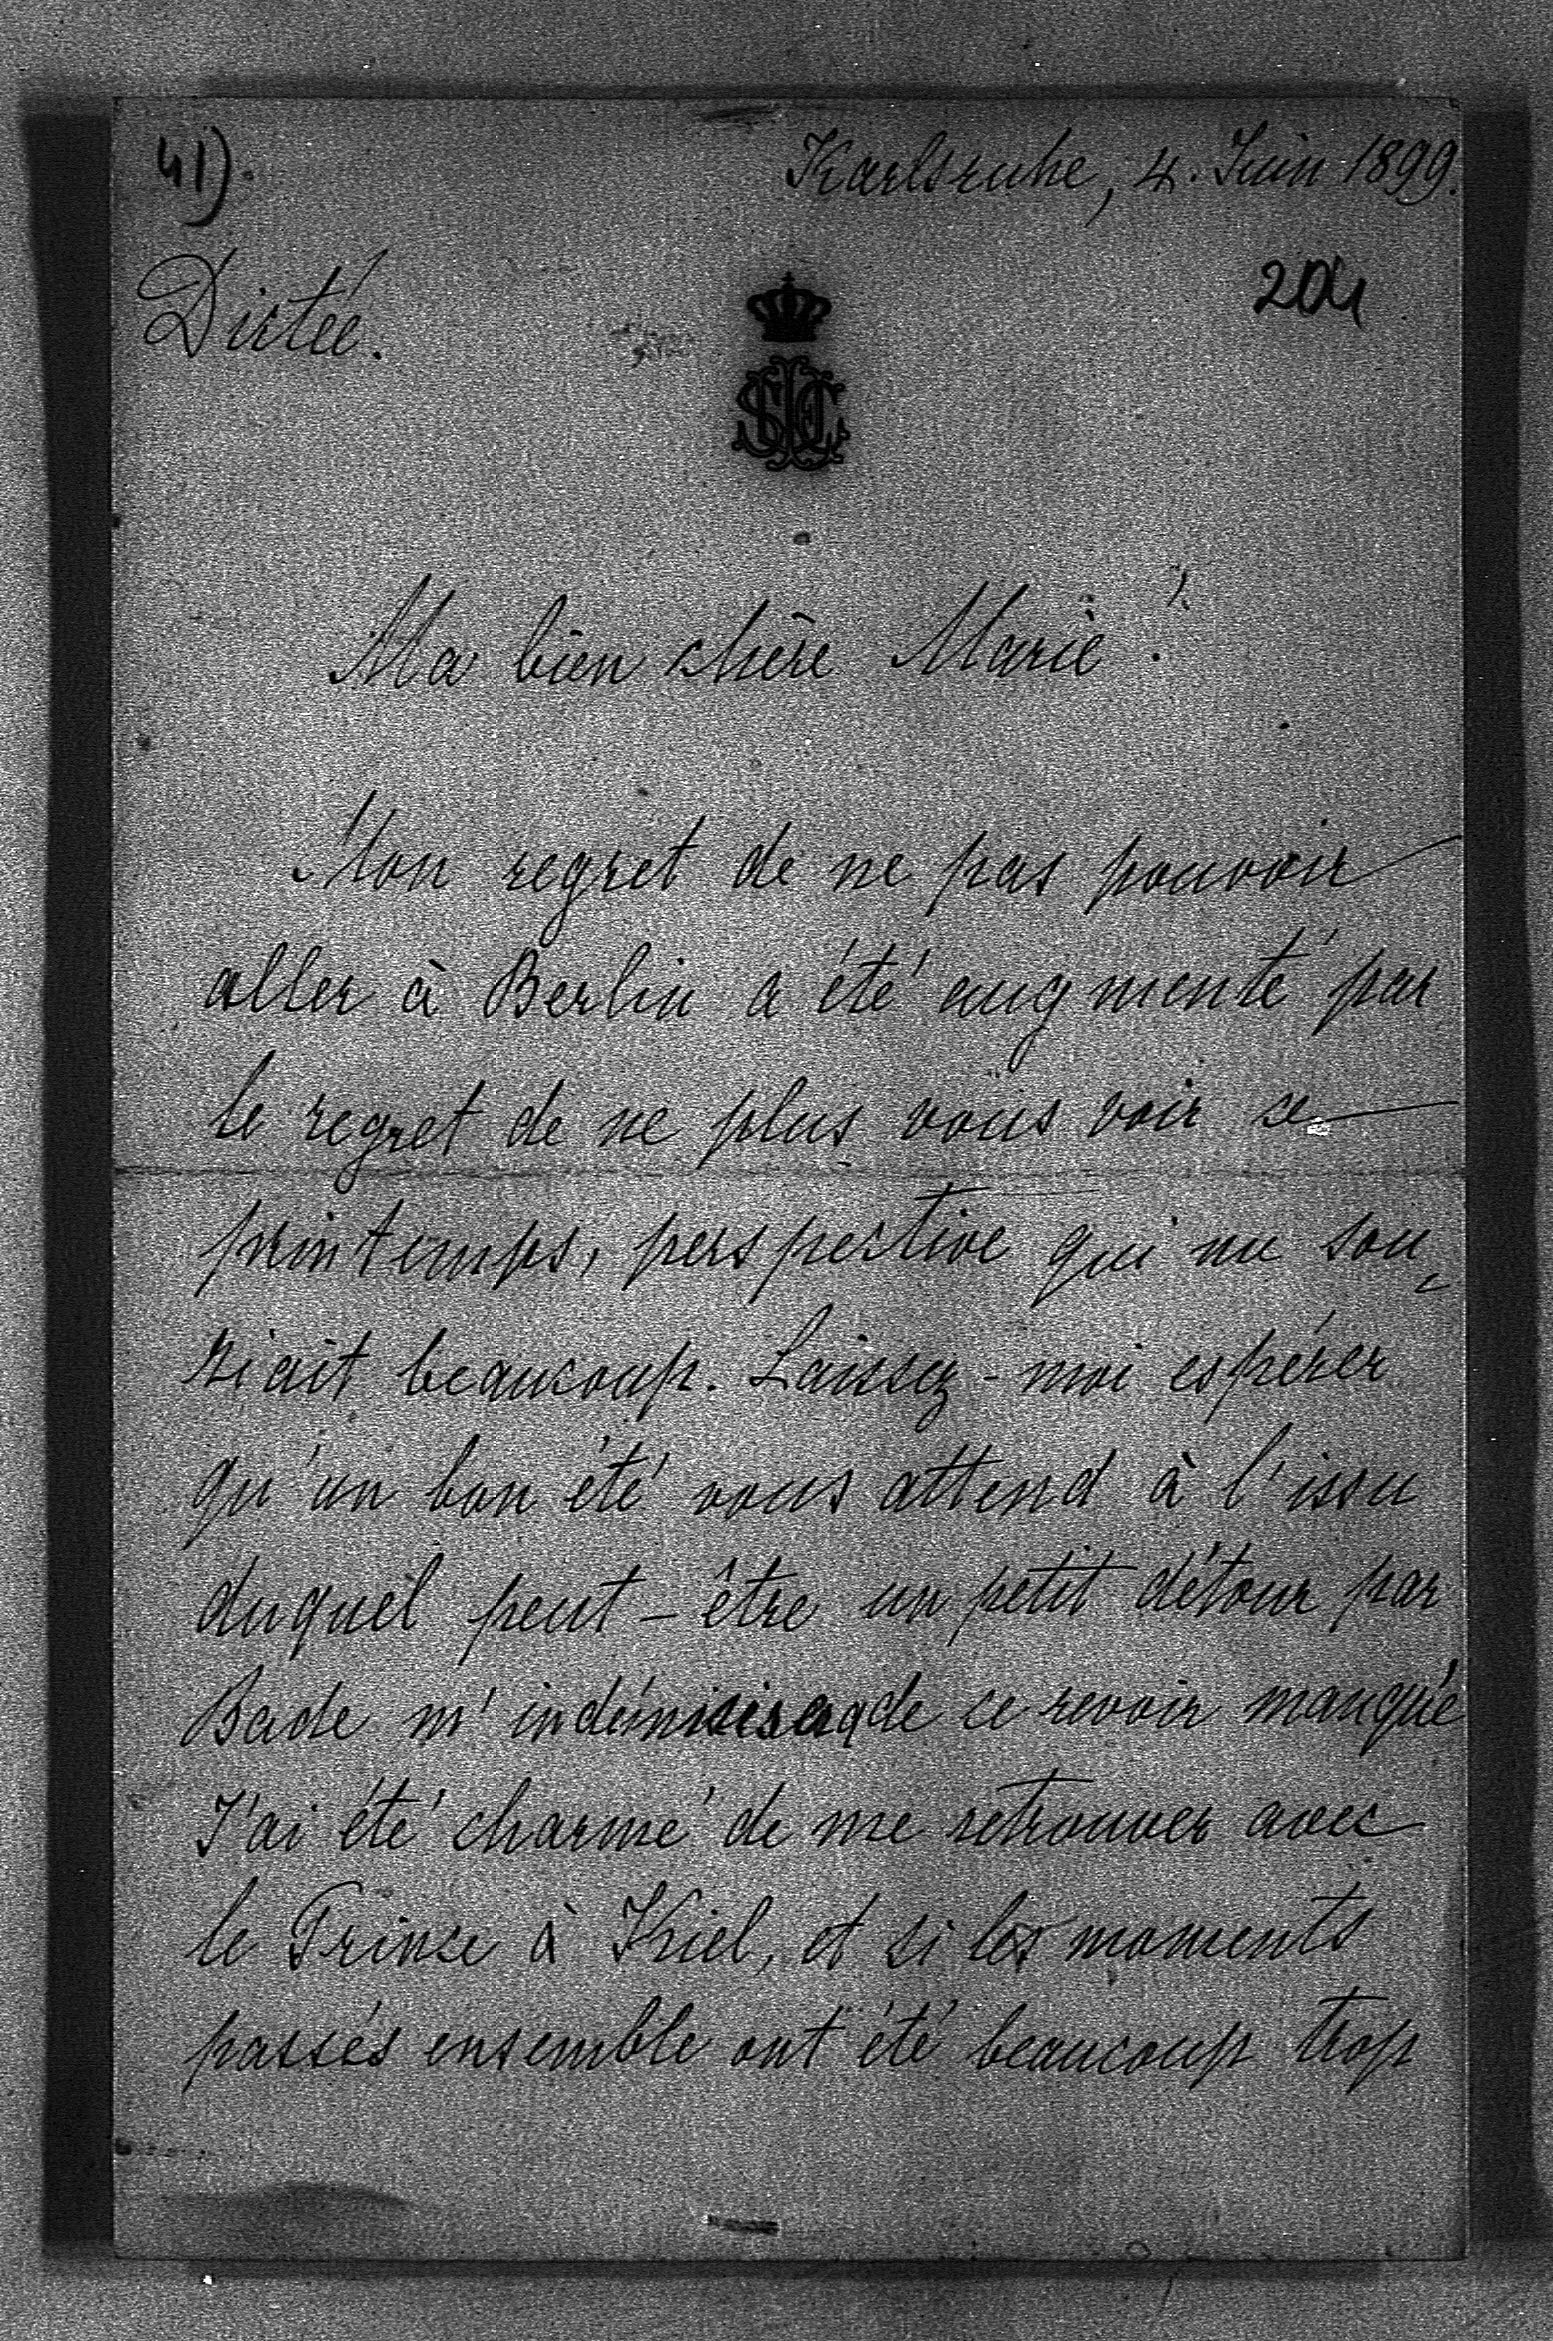 41).
Karlsruhe, 4. Juin 1899.
Dictée.
204
Ma bien chère Marie!
Mon regret de ne pas pouvoir
aller à Berlin a été augmenté par
le regret de ne plus vous voir ce
printemps, perspective qui me sou-
riait beaucoup. Laissez-moi espérer
qu'un bon été vous attend à l'issu
duquel peut-être un petit détour par
Bade m' de ce revoir manqué
J'ai été charmé de me retrouver avec
le Prince à Kiel, et si les moments
passés ensemble ont été beaucoup trop